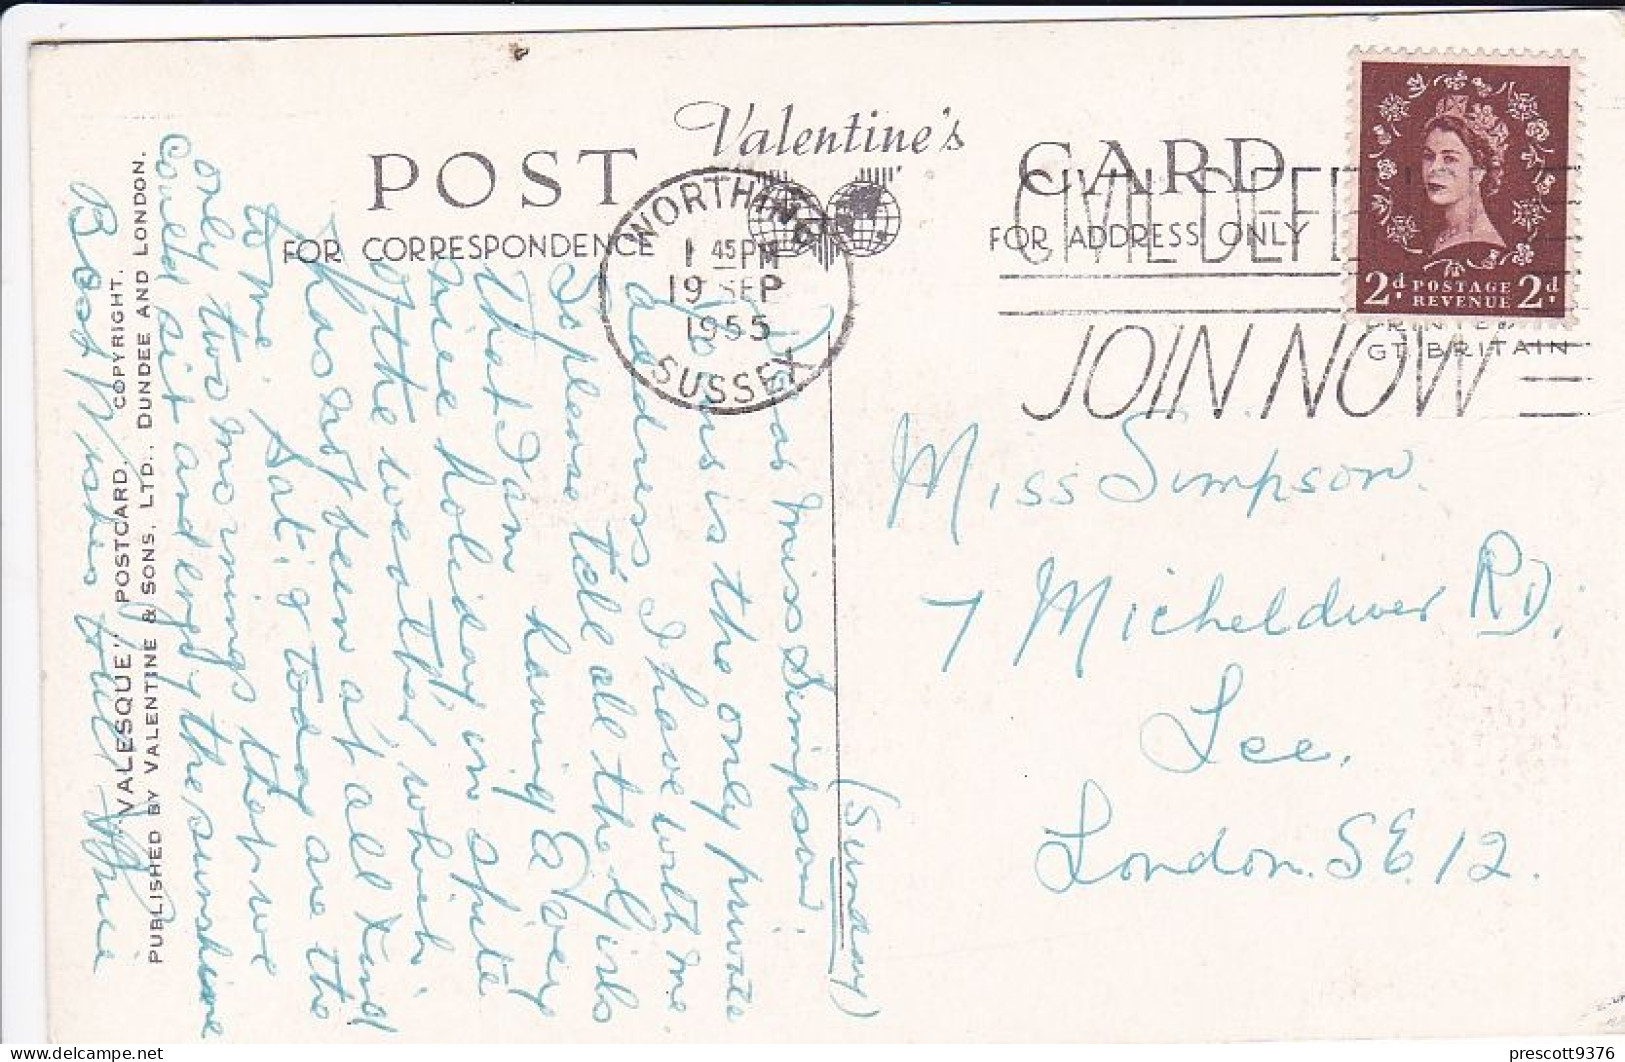 Valentine's
POST CARD
FOR CORRESPONDENCE
FOR ADDRESS ONLY
WORTHING
1 45 PM
19 SEP
1955
SUSSEX
CIVIL DEFE
JOIN NOW
2d. POSTAGE REVENUE 2d.
PRINTED
GT. BRITAIN
(Sunday)
Dear Miss Simpson,
Yours is the only private
address I have with me
So please tell all the Girls
that I am having a very
nice holiday in spite
of the weather, which
has not been at all kind
to me. Sat. & today are the
only two mornings that we
could sit and enjoy the sunshine
Best Wishes to all
Miss Simpson.
7 Micheldever RD.
Lee.
London. S E. 12.
"VALESQUE" POSTCARD. COPYRIGHT.
PUBLISHED BY VALENTINE & SONS, LTD., DUNDEE AND LONDON.
prescott9376